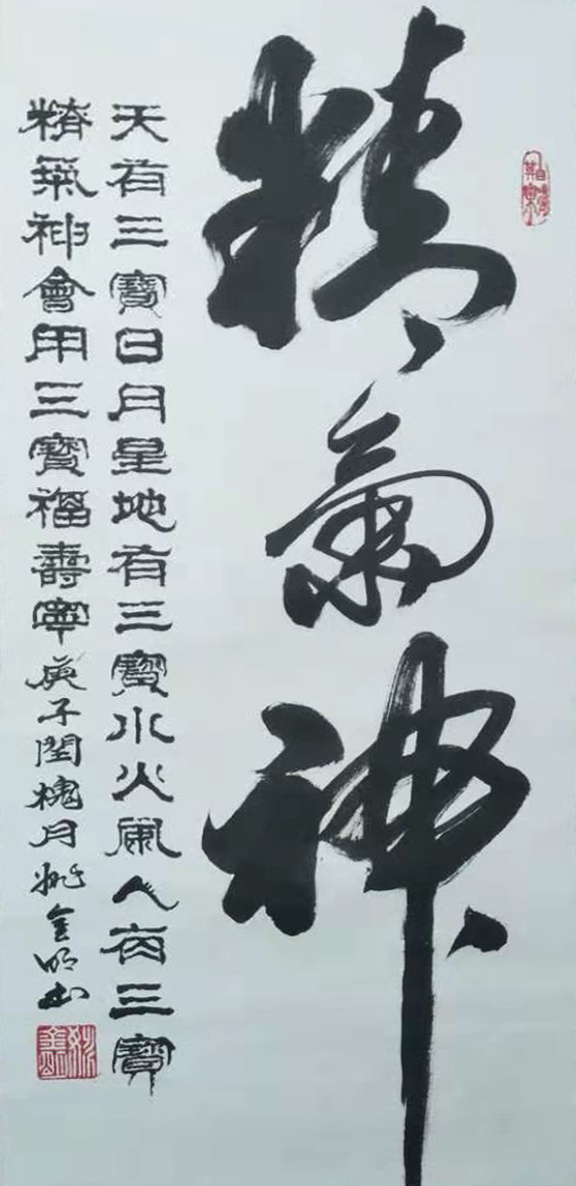 精氣神
天有三寶日月星地有三寶水火風人有三寶
精氣神會用三寶福壽寧庚子閏槐月姚金明书